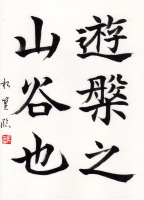 遊槃之
山谷也
松篁臨